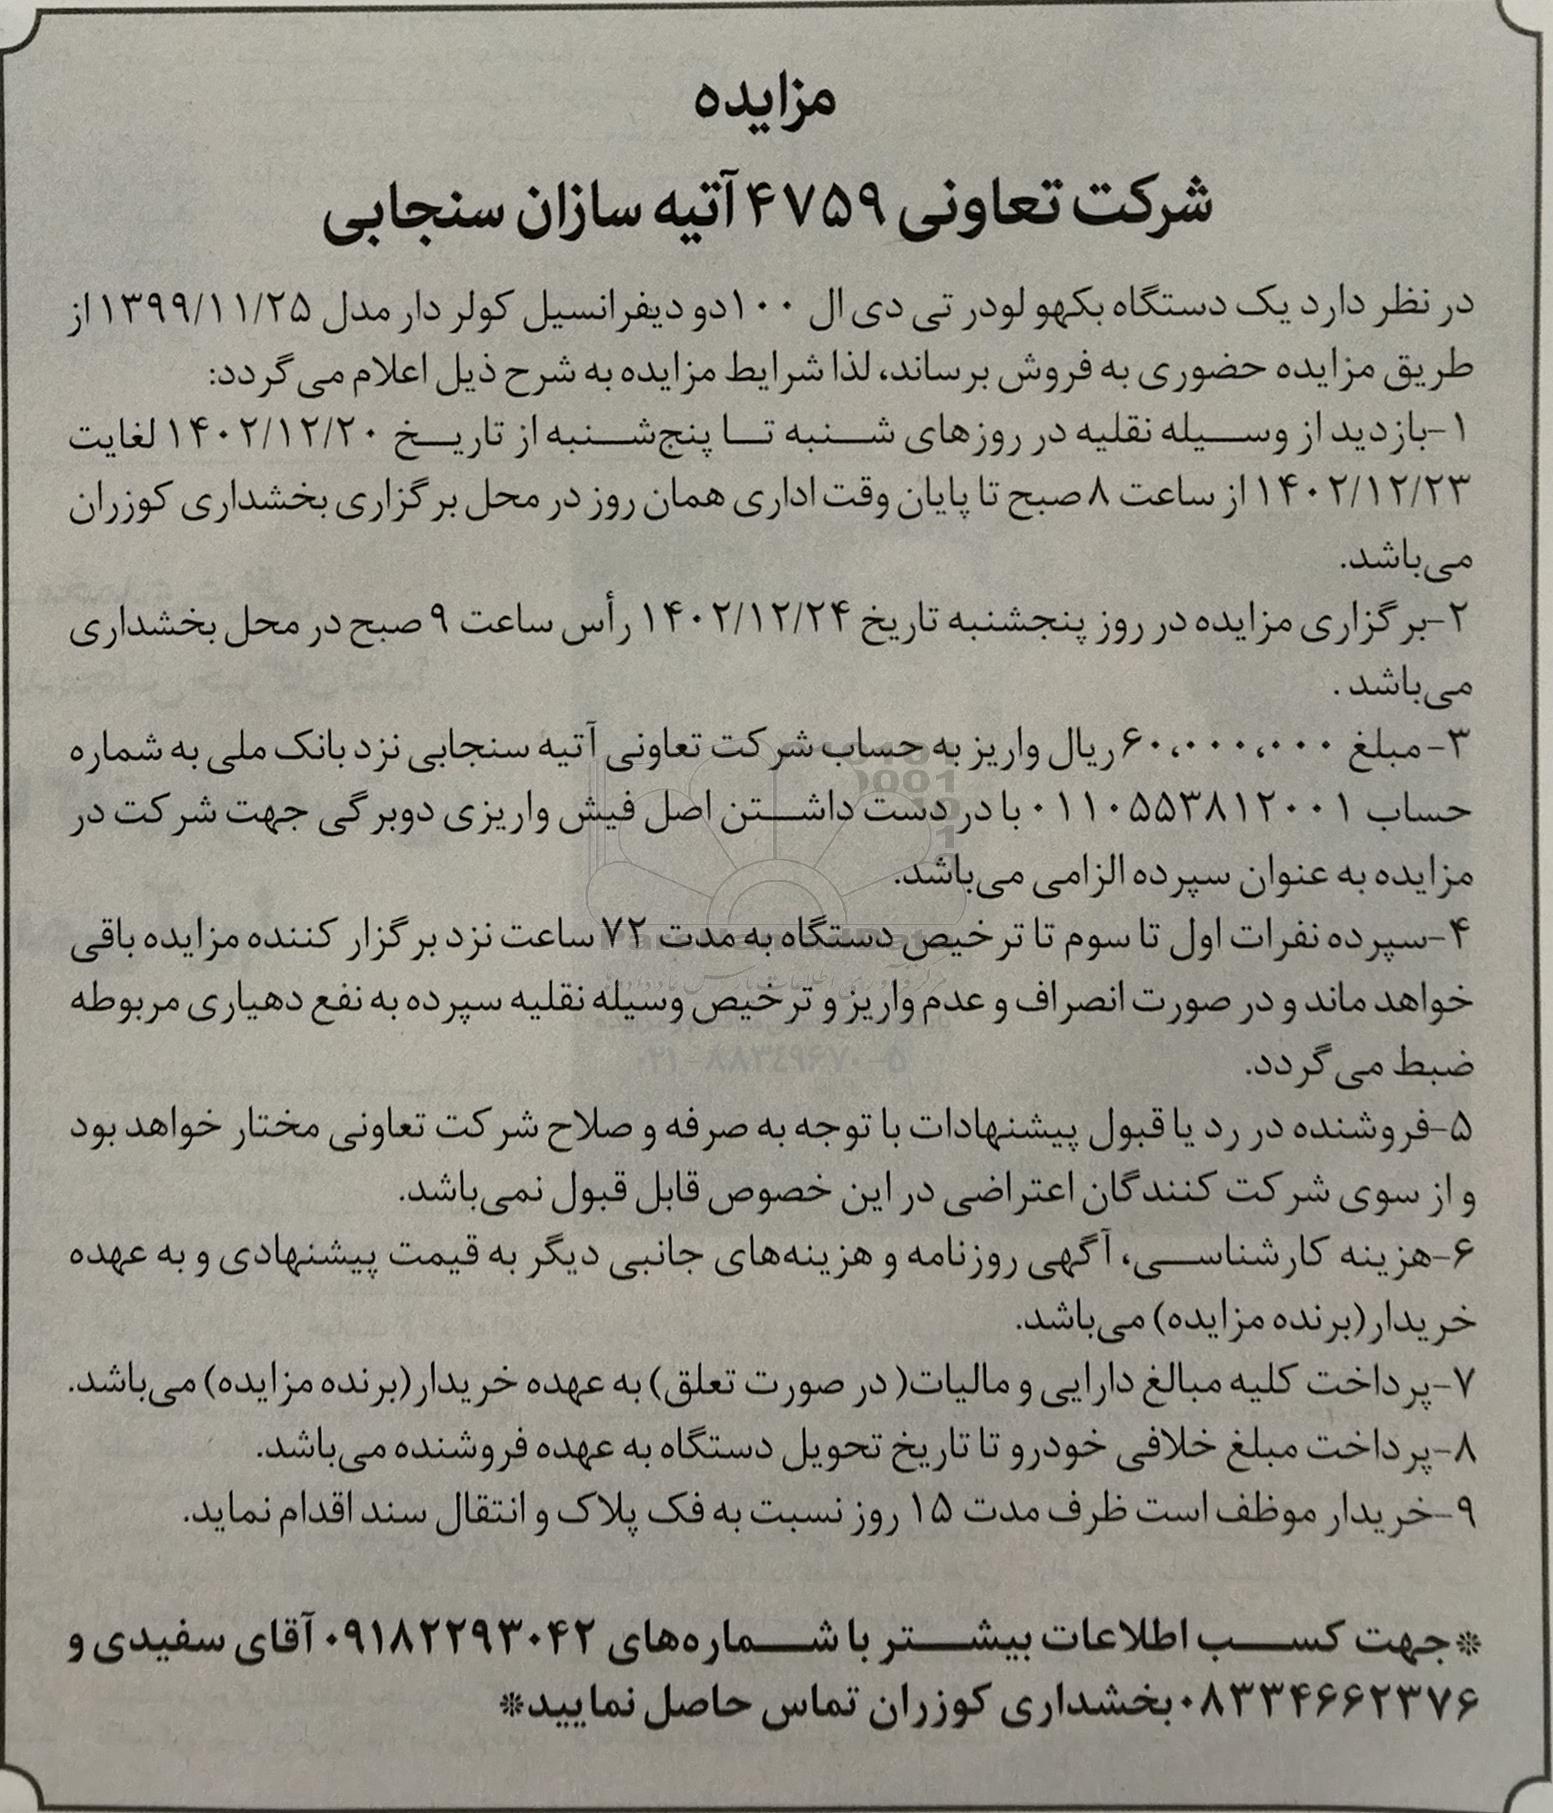 مزایده
شرکت تعاونی ۴۷۵۹ آتیه سازان سنجابی
در نظر دارد یک دستگاه بکهو لودر تی دی ال ۱۰۰ دو دیفرانسیل کولر دار مدل ۱۳۹۹/۱۱/۲۵ از
طریق مزایده حضوری به فروش برساند، لذا شرایط مزایده به شرح ذیل اعلام می گردد:
۱-بازدید از وسیله نقلیه در روزهای شنبه تا پنج‌شنبه از تاریخ ۱۴۰۲/۱۲/۲۰ لغایت
۱۴۰۲/۱۲/۲۳ از ساعت ۸ صبح تا پایان وقت اداری همان روز در محل برگزاری بخشداری کوزران
می‌باشد.
۲-برگزاری مزایده در روز پنجشنبه تاریخ ۱۴۰۲/۱۲/۲۴ رأس ساعت ۹ صبح در محل بخشداری
می‌باشد .
۳- مبلغ ۶۰،۰۰۰،۰۰۰ ریال واریز به حساب شرکت تعاونی آتیه سنجابی نزد بانک ملی به شماره
حساب ۰۱۱۰۵۵۳۸۱۲۰۰۱ با در دست داشتن اصل فیش واریزی دوبرگی جهت شرکت در
مزایده به عنوان سپرده الزامی می‌باشد.
۴-سپرده نفرات اول تا سوم تا ترخیص دستگاه به مدت ۷۲ ساعت نزد برگزار کننده مزایده باقی
خواهد ماند و در صورت انصراف و عدم واریز و ترخیص وسیله نقلیه سپرده به نفع دهیاری مربوطه
ضبط می گردد.
۰۲۱-۸۸۳۴۹۶۷۰-۵
۵-فروشنده در رد یا قبول پیشنهادات با توجه به صرفه و صلاح شرکت تعاونی مختار خواهد بود
و از سوی شرکت کنندگان اعتراضی در این خصوص قابل قبول نمی‌باشد.
۶-هزینه کارشناسی، آگهی روزنامه و هزینه‌های جانبی دیگر به قیمت پیشنهادی و به عهده
خریدار(برنده مزایده) می‌باشد.
۷-پرداخت کلیه مبالغ دارایی و مالیات( در صورت تعلق) به عهده خریدار(برنده مزایده) می‌باشد.
۸-پرداخت مبلغ خلافی خودرو تا تاریخ تحویل دستگاه به عهده فروشنده می‌باشد.
۹-خریدار موظف است ظرف مدت ۱۵ روز نسبت به فک پلاک و انتقال سند اقدام نماید.
*جهت کسب اطلاعات بیشتر با شماره‌های ۰۹۱۸۲۲۹۳۰۴۲ آقای سفیدی و
۰۸۳۳۴۶۶۲۳۷۶ بخشداری کوزران تماس حاصل نمایید*